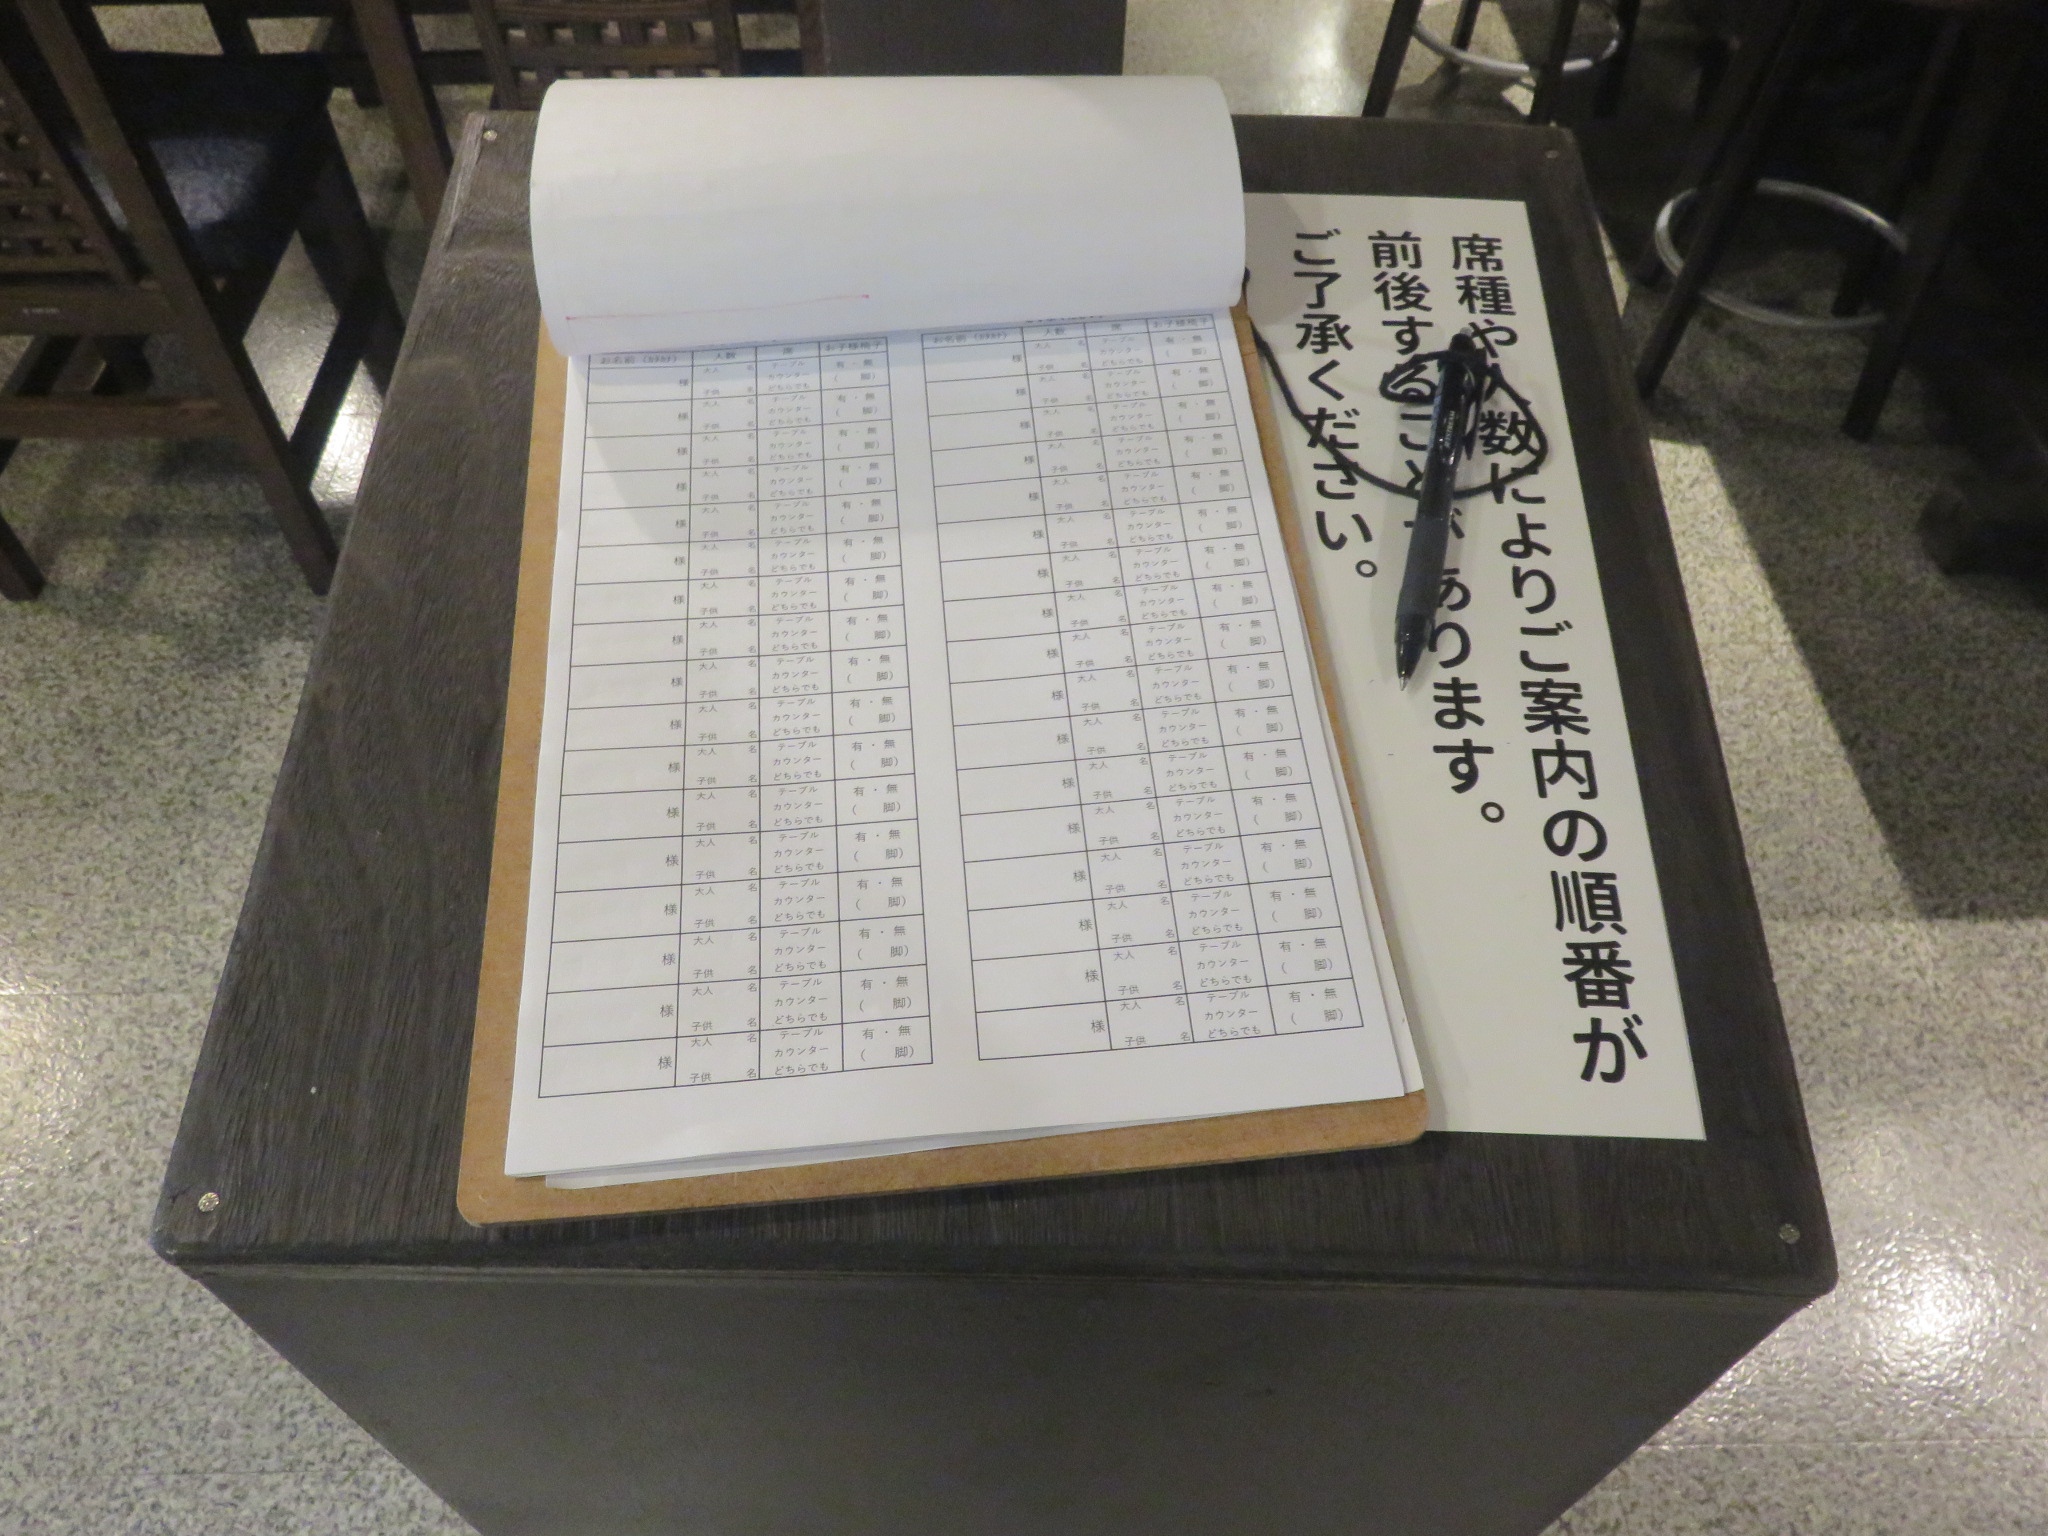 お名前（カタカナ） 人数 席 お子様椅子
大人 名 テーブル 有・無
様 カウンター ( 脚)
子供 名 どちらでも
大人 名 テーブル 有・無
様 カウンター ( 脚)
子供 名 どちらでも
大人 名 テーブル 有・無
様 カウンター ( 脚)
子供 名 どちらでも
大人 名 テーブル 有・無
様 カウンター ( 脚)
子供 名 どちらでも
大人 名 テーブル 有・無
様 カウンター ( 脚)
子供 名 どちらでも
大人 名 テーブル 有・無
様 カウンター ( 脚)
子供 名 どちらでも
大人 名 テーブル 有・無
様 カウンター ( 脚)
子供 名 どちらでも
大人 名 テーブル 有・無
様 カウンター ( 脚)
子供 名 どちらでも
大人 名 テーブル 有・無
様 カウンター ( 脚)
子供 名 どちらでも
大人 名 テーブル 有・無
様 カウンター ( 脚)
子供 名 どちらでも
大人 名 テーブル 有・無
様 カウンター ( 脚)
子供 名 どちらでも
大人 名 テーブル 有・無
様 カウンター ( 脚)
子供 名 どちらでも
大人 名 テーブル 有・無
様 カウンター ( 脚)
子供 名 どちらでも
大人 名 テーブル 有・無
様 カウンター ( 脚)
子供 名 どちらでも
大人 名 テーブル 有・無
様 カウンター ( 脚)
子供 名 どちらでも
大人 名 テーブル 有・無
様 カウンター ( 脚)
子供 名 どちらでも
大人 名 テーブル 有・無
様 カウンター ( 脚)
子供 名 どちらでも
お名前（カタカナ） 人数 席 お子様椅子
大人 名 テーブル 有・無
様 カウンター ( 脚)
子供 名 どちらでも
大人 名 テーブル 有・無
様 カウンター ( 脚)
子供 名 どちらでも
大人 名 テーブル 有・無
様 カウンター ( 脚)
子供 名 どちらでも
大人 名 テーブル 有・無
様 カウンター ( 脚)
子供 名 どちらでも
大人 名 テーブル 有・無
様 カウンター ( 脚)
子供 名 どちらでも
大人 名 テーブル 有・無
様 カウンター ( 脚)
子供 名 どちらでも
大人 名 テーブル 有・無
様 カウンター ( 脚)
子供 名 どちらでも
大人 名 テーブル 有・無
様 カウンター ( 脚)
子供 名 どちらでも
大人 名 テーブル 有・無
様 カウンター ( 脚)
子供 名 どちらでも
大人 名 テーブル 有・無
様 カウンター ( 脚)
子供 名 どちらでも
大人 名 テーブル 有・無
様 カウンター ( 脚)
子供 名 どちらでも
大人 名 テーブル 有・無
様 カウンター ( 脚)
子供 名 どちらでも
大人 名 テーブル 有・無
様 カウンター ( 脚)
子供 名 どちらでも
大人 名 テーブル 有・無
様 カウンター ( 脚)
子供 名 どちらでも
大人 名 テーブル 有・無
様 カウンター ( 脚)
子供 名 どちらでも
大人 名 テーブル 有・無
様 カウンター ( 脚)
子供 名 どちらでも
大人 名 テーブル 有・無
様 カウンター ( 脚)
子供 名 どちらでも
席種や人数によりご案内の順番が
前後することがあります。
ご了承ください。